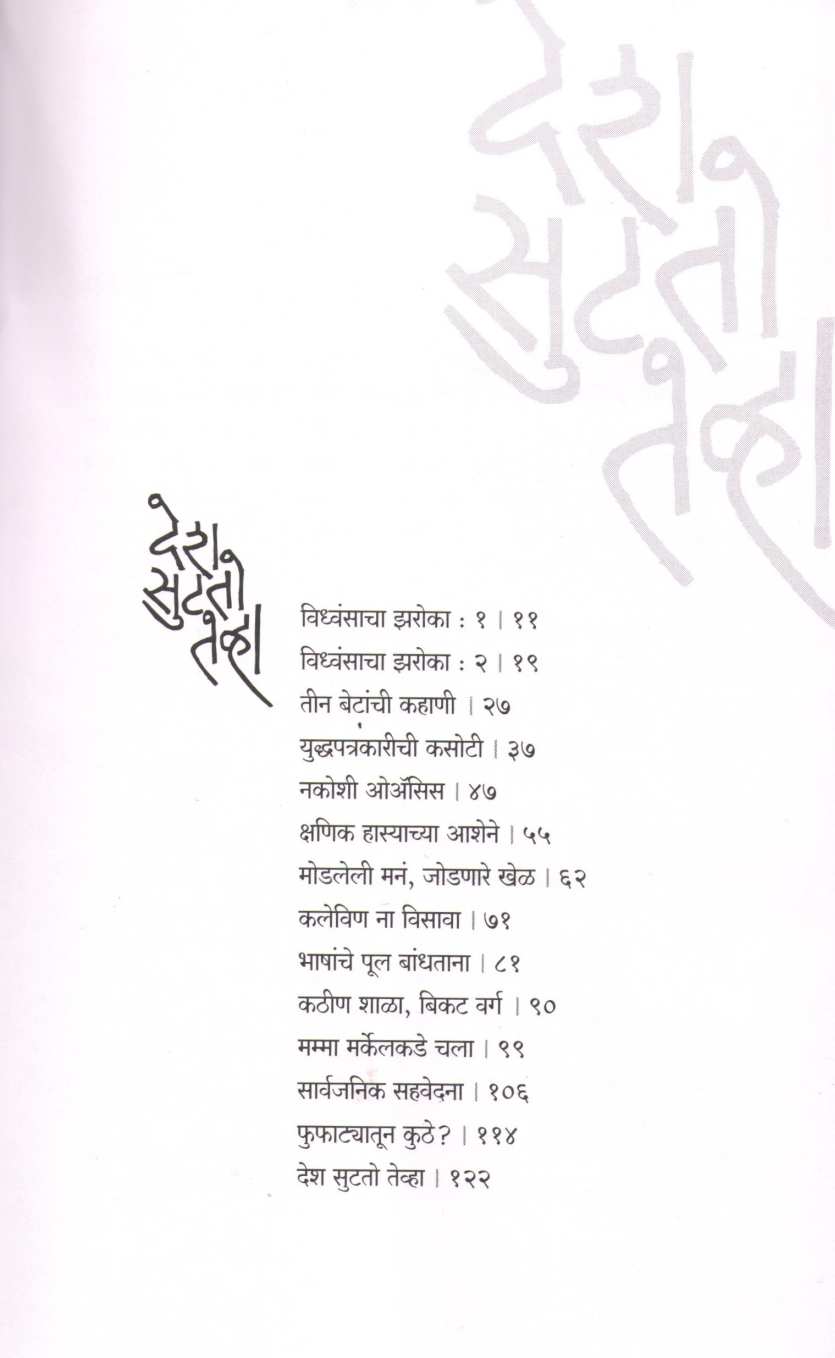 देश
सुटतो
तेव्हा
देश
सुटतो
तेव्हा
विध्वंसाचा झरोका : १ | ११
विध्वंसाचा झरोका : २ | १९
तीन बेटांची कहाणी | २७
युद्धपत्रकारीची कसोटी | ३७
नकोशी ओॲसिस | ४७
क्षणिक हास्याच्या आशेने | ५५
मोडलेली मनं, जोडणारे खेळ | ६२
कलेविण ना विसावा | ७१
भाषांचे पूल बांधताना | ८१
कठीण शाळा, बिकट वर्ग | ९०
मम्मा मर्केलकडे चला | ९९
सार्वजनिक सहवेदना | १०६
फुफाट्यातून कुठे? | ११४
देश सुटतो तेव्हा | १२२